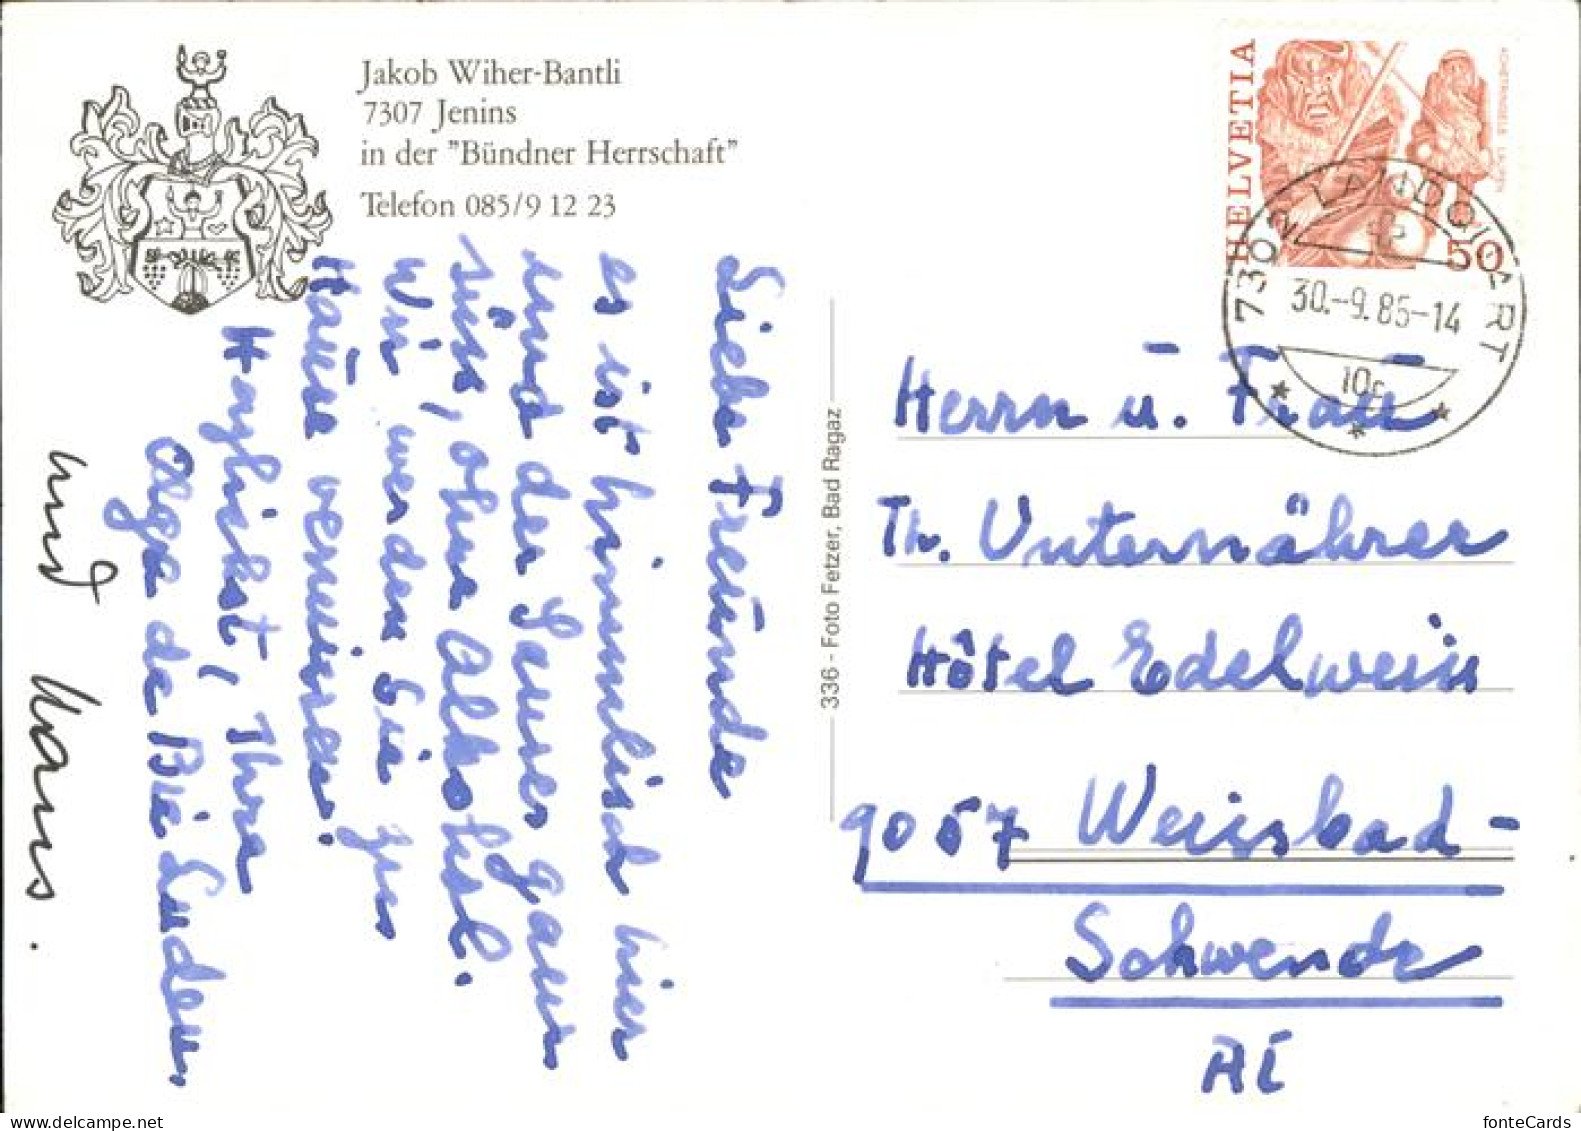 Jakob Wiher-Bantli
7307 Jenins
in der "Bündner Herrschaft"
Telefon 085/9 12 23
Liebe Freunde
es ist himmlisch hier
und der Sauser ganz
süss, ohne Alkohol.
Wir werden Sie zu
Hause vermissen!
Herzlichst, Ihre
Olga de Bie Luden
und Hans.
336 - Foto Fetzer, Bad Ragaz
HELVETIA
50
ACHETRINGELE LAUPEN
7302 LANDQUART
30.-9.85-14
10c
Herrn u. Frau
Th. Unternährer
Hôtel Edelweiss
9057 Weissbad-
Schwende
AI
fonteCards